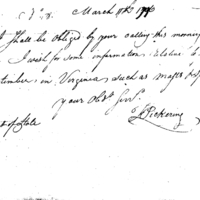 March 11th 1796
I Shall be obliged by your calling this morning
I wish for some information relative to
timber in Virginia such as masts
your Obt. Servt.
T Pickering
of State